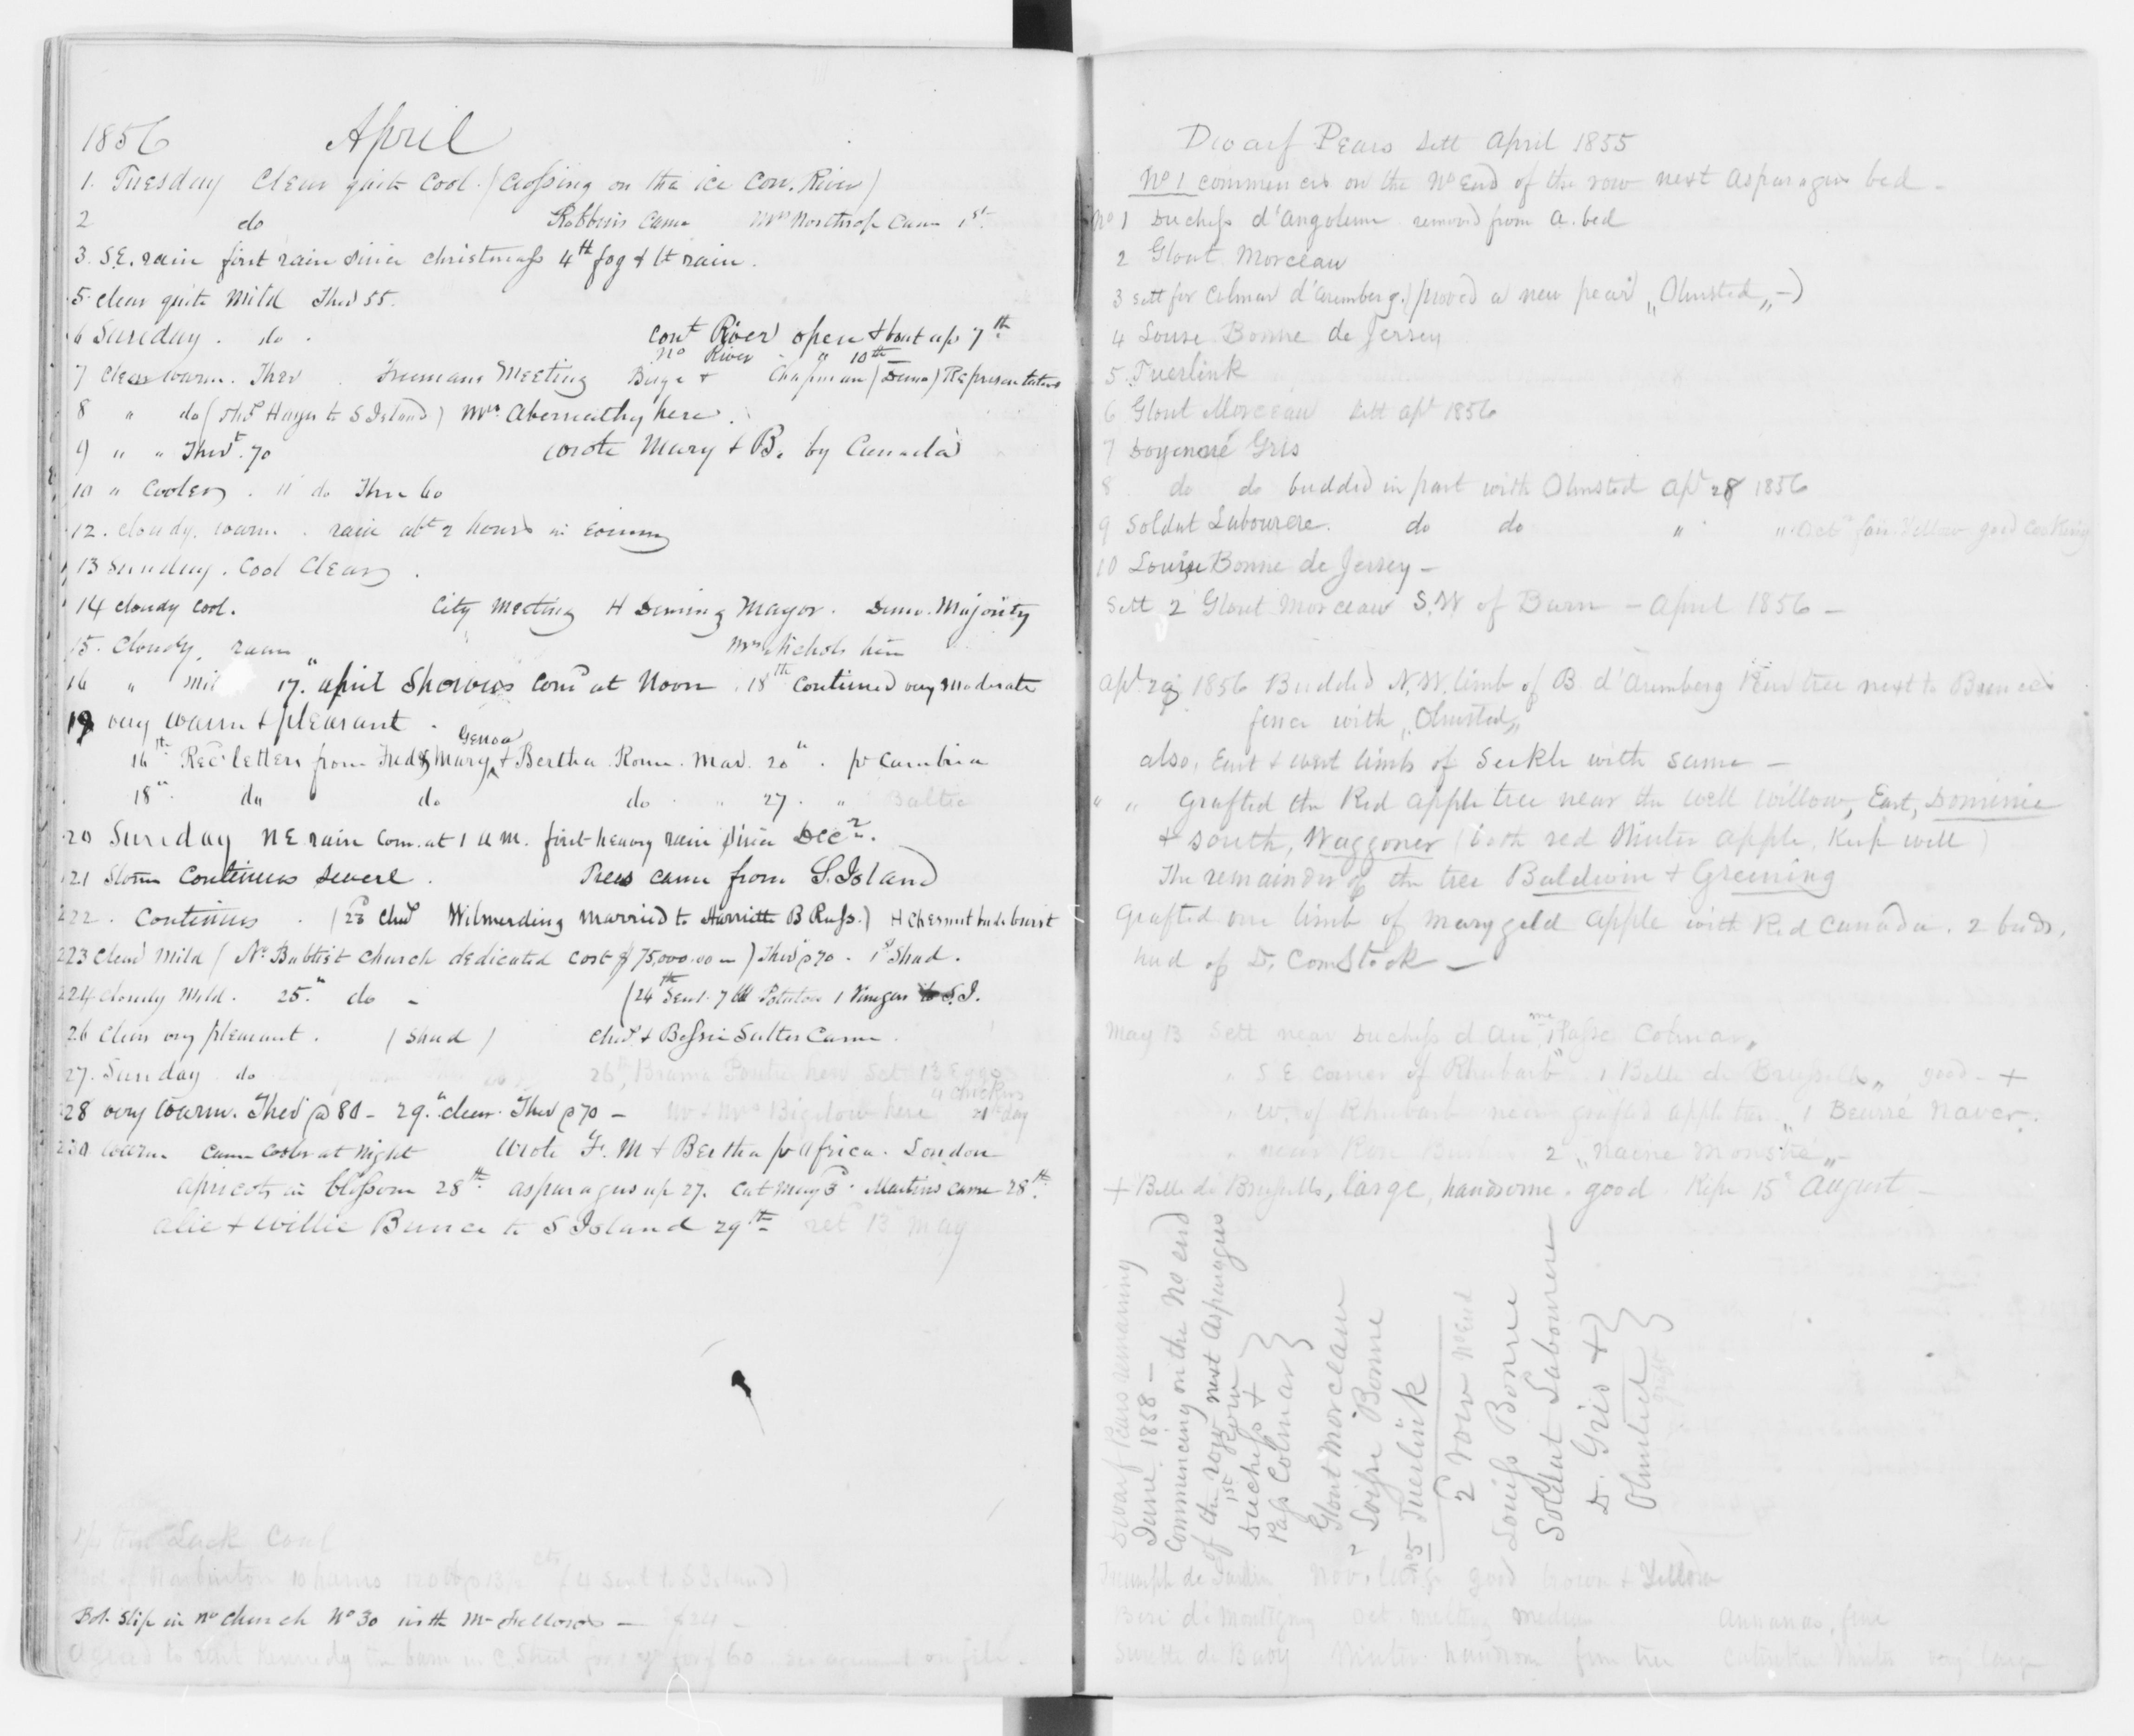 1856 April
1. Tuesday Clear quite Cool. (Crossing on the ice Con. River)
2 do Robbins came Mrs Northrop Came 1st
3. S.E. rain first rain since christmass 4th fog & lt rain.
5. clear quite mild Ther 55.
6 Sunday. do. Cont River open & boat up 7th
No River " 10th
7 Clear warm. Ther Freemans Meeting & Chapman (Demo) Representatives
8 " do (Hayes to S Island) Mrs Abernathy here.
9 " " Thert. 70 wrote Mary & B. by Canada
10 " Cooler. 11 do Ther 60
12. cloudy. warm. rain abt 2 hours in Evening
13 Sunday. Cool Clear.
14 cloudy cool. City Meeting H Deming Mayor. Demo. Majority
15. Cloudy, rain Mrs Nichols here
16 " 17." april Showers comd at Noon. 18th Continued very Moderate
19 very warm & pleasant.
Genoa
16th Recd letters from Fred & Mary & Bertha Rome. Mar. 20". pr Cambria
18" do do do " 27. " Baltic
20 Sunday NE rain Com. at 1 A M. first heavy rain since Decr.
21 Storm Continues severe. Trees came from S. Island
22. Continues. (23d Wilmerding married to Harriett B Russ.) H Chesnut buds burst
23 Clear Mild (No. Babtist Church dedicated cost $75,000.00 —) Ther @ 70. 1st Shad.
24 cloudy Mild. 25." do - (24th Sent 7 Potatoes 1 Vinegar to S.I.
26 Clear very pleasant. (Shad) & Bessie Salter Came.
27. Sunday do 26th, Brama hen Set 13 Eggs
4 chickens
28 very warm. Ther @ 80 - 29." clear. Ther @ 70 - Mr & Mrs Bigelow here 21st day
30 warm Came Cooler at Night Wrote F. M & Bertha pr Africa. London
apricots in blossom 28th asparagus up 27. cut May 3d. Martins came 28th.
Alie & Willie Bunce to S Island 29th ret 13 May
Lack Coal
(4 sent to S Island)
Bot. slip in No Church No 30 with Mr Fellowes — $20 -
Agreed to rent Kennedy the barn in C. Street for $60 agreement on file.
Dwarf Pears Sett April 1855
No 1 commences on the No End of the row next Asparagus bed -
No 1 Duchess d'Angoleme removed from A. bed
2 Glout Morceau
3 sett for Colmar d'Aremberg. (proved a new pear „Olmsted„ -)
4 Louise Bonne de Jersey
5 Tuerlink
6 Glout Morceau Sett apl 1856
7 Doyenné Gris
8 do do budded in part with Olmsted apl 28 1856
9 Soldat Labourere. do do " " Octr fair. Yellow good Cooking
10 Louise Bonne de Jersey -
Sett 2 Glout Morceau S.W of Barn - April 1856 -
apl 29 1856 Budded N.W. limb of B d'Aremberg Pear tree next to Bunce's
fence with „Olmsted„
also, East & west limb of Seckle with same -
" " Grafted the Red apple tree near the well Willow, East, Dominie
& South, Waggoner (both red Winter apple. Keep well)
The remainder of the tree Baldwin & Greening
Grafted one limb of marygold apple with Red Canada. 2 buds,
had of D. Comstock —
May 13 Sett near Duchess d Anme, 1 Passe Colmar„
" S E corner of Rhubarb 1 Belle de Brussells„ good - +
" W. of Rhubarb near grafted apple tree „ 1 Beurré Naver.
" near 2 „Naine Monstre„ -
+ Belle de Brussells, large, handsome. good. Ripe 15th August -
Dwarf Pears remaining
June 1858 -
Commencing on the No end
of the row next Asparagus
1st Row
Duchess &
Pass Colmar }
Glout Morceau
" Loisse Bonne
No 5 Tuerlink
2d row No End
Louiss Bonne
Soldat Labourere
D. Gris & }
Olmsted
Triumph de Jardin Nov. large good brown & Yellow
Bosi de Montigny Oct melting medium Annanas, fine
Suzette de Bavy Winter handsom fine tree Catinka Winter very large